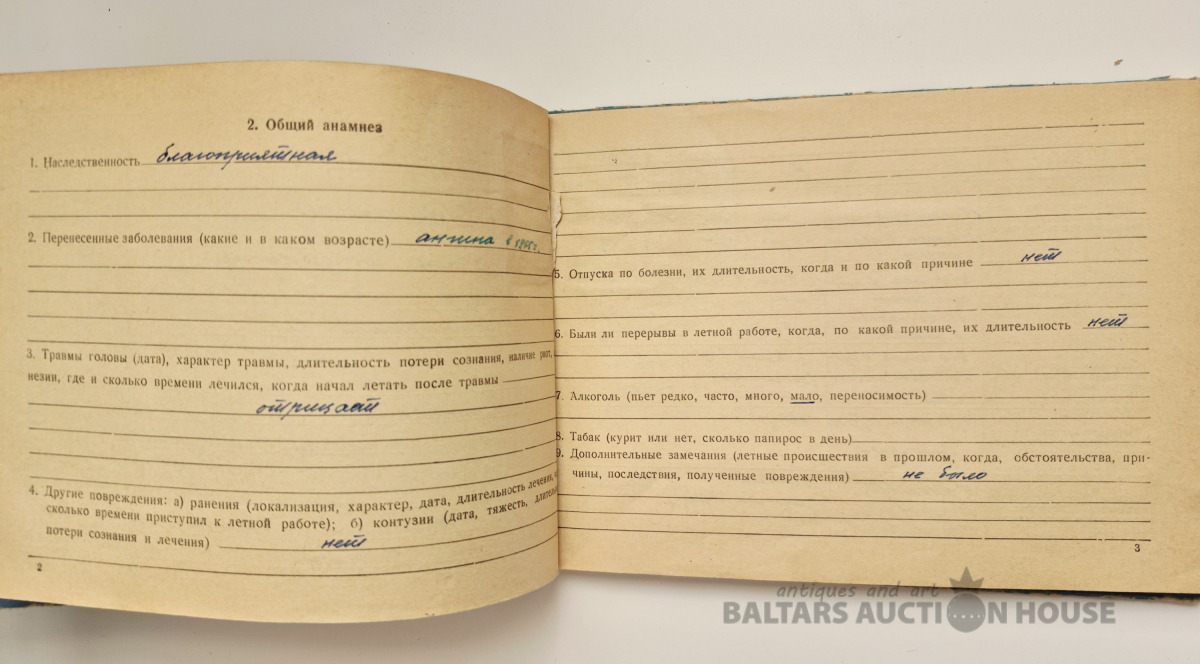 2. Общий анамнез
1. Наследственность благоприятная
2. Перенесенные заболевания (какие и в каком возрасте) ангина в
3. Травмы головы (дата), характер травмы, длительность потери сознания, наличие
незии, где и сколько времени лечился, когда начал летать после травмы
отрицает
4. Другие повреждения: а) ранения (локализация, характер, дата, длительность лечения,
сколько времени приступил к летной работе); б) контузии (дата, тяжесть,
потери сознания и лечения) нет
2
5. Отпуска по болезни, их длительность, когда и по какой причине нет
6. Были ли перерывы в летной работе, когда, по какой причине, их длительность нет
7. Алкоголь (пьет редко, часто, много, мало, переносимость)
8. Табак (курит или нет, сколько папирос в день)
9. Дополнительные замечания (летные происшествия в прошлом, когда, обстоятельства, при-
чины, последствия, полученные повреждения) не было
3
antiques and art
BALTARS AUCTION HOUSE